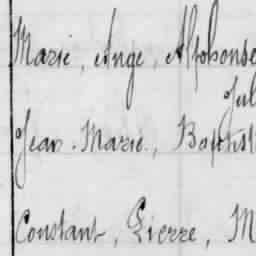 Marie, Ange, Alphonse
Jul
Jean-Marie, Baptist
Constant, Pierre, M